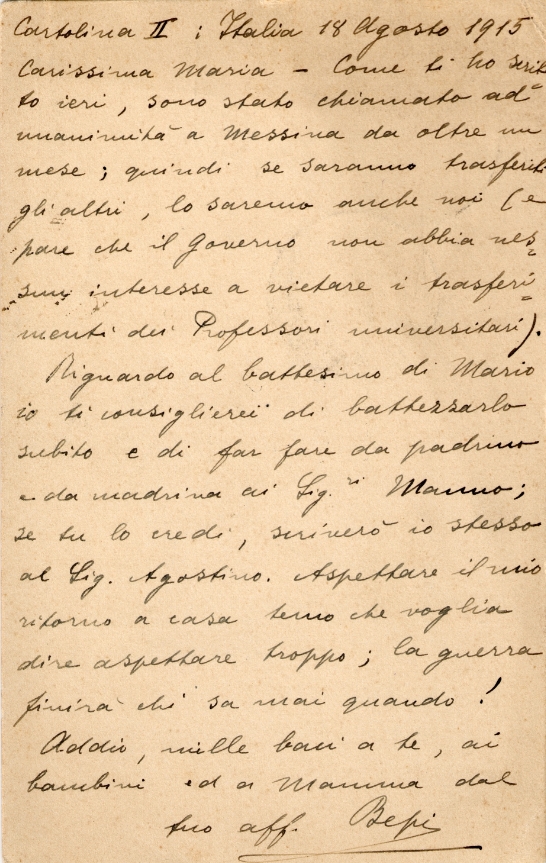 Cartolina II : Italia 18 Agosto 1915
Carissima Maria – Come ti ho scrit
to ieri, sono stato chiamato ad
unanimità a Messina da oltre un
mese; quindi se saranno trasferiti
gli altri, lo saremo anche noi (e
pare che il Governo non abbia nes=
sun interesse a vietare i trasferi=
menti dei Professori universitari).
Riguardo al battesimo di Mario
io ti consiglierei di battezzarlo
subito e di far fare da padrino
e da madrina ai Sig.ri Manno;
se tu lo credi, scriverò io stesso
al Sig. Agostino. Aspettare il mio
ritorno a casa temo che voglia
dire aspettare troppo; la guerra
finirà chi sa mai quando!
Addio, mille baci a te, ai
bambini ed a Mamma dal
tuo aff. Bepi